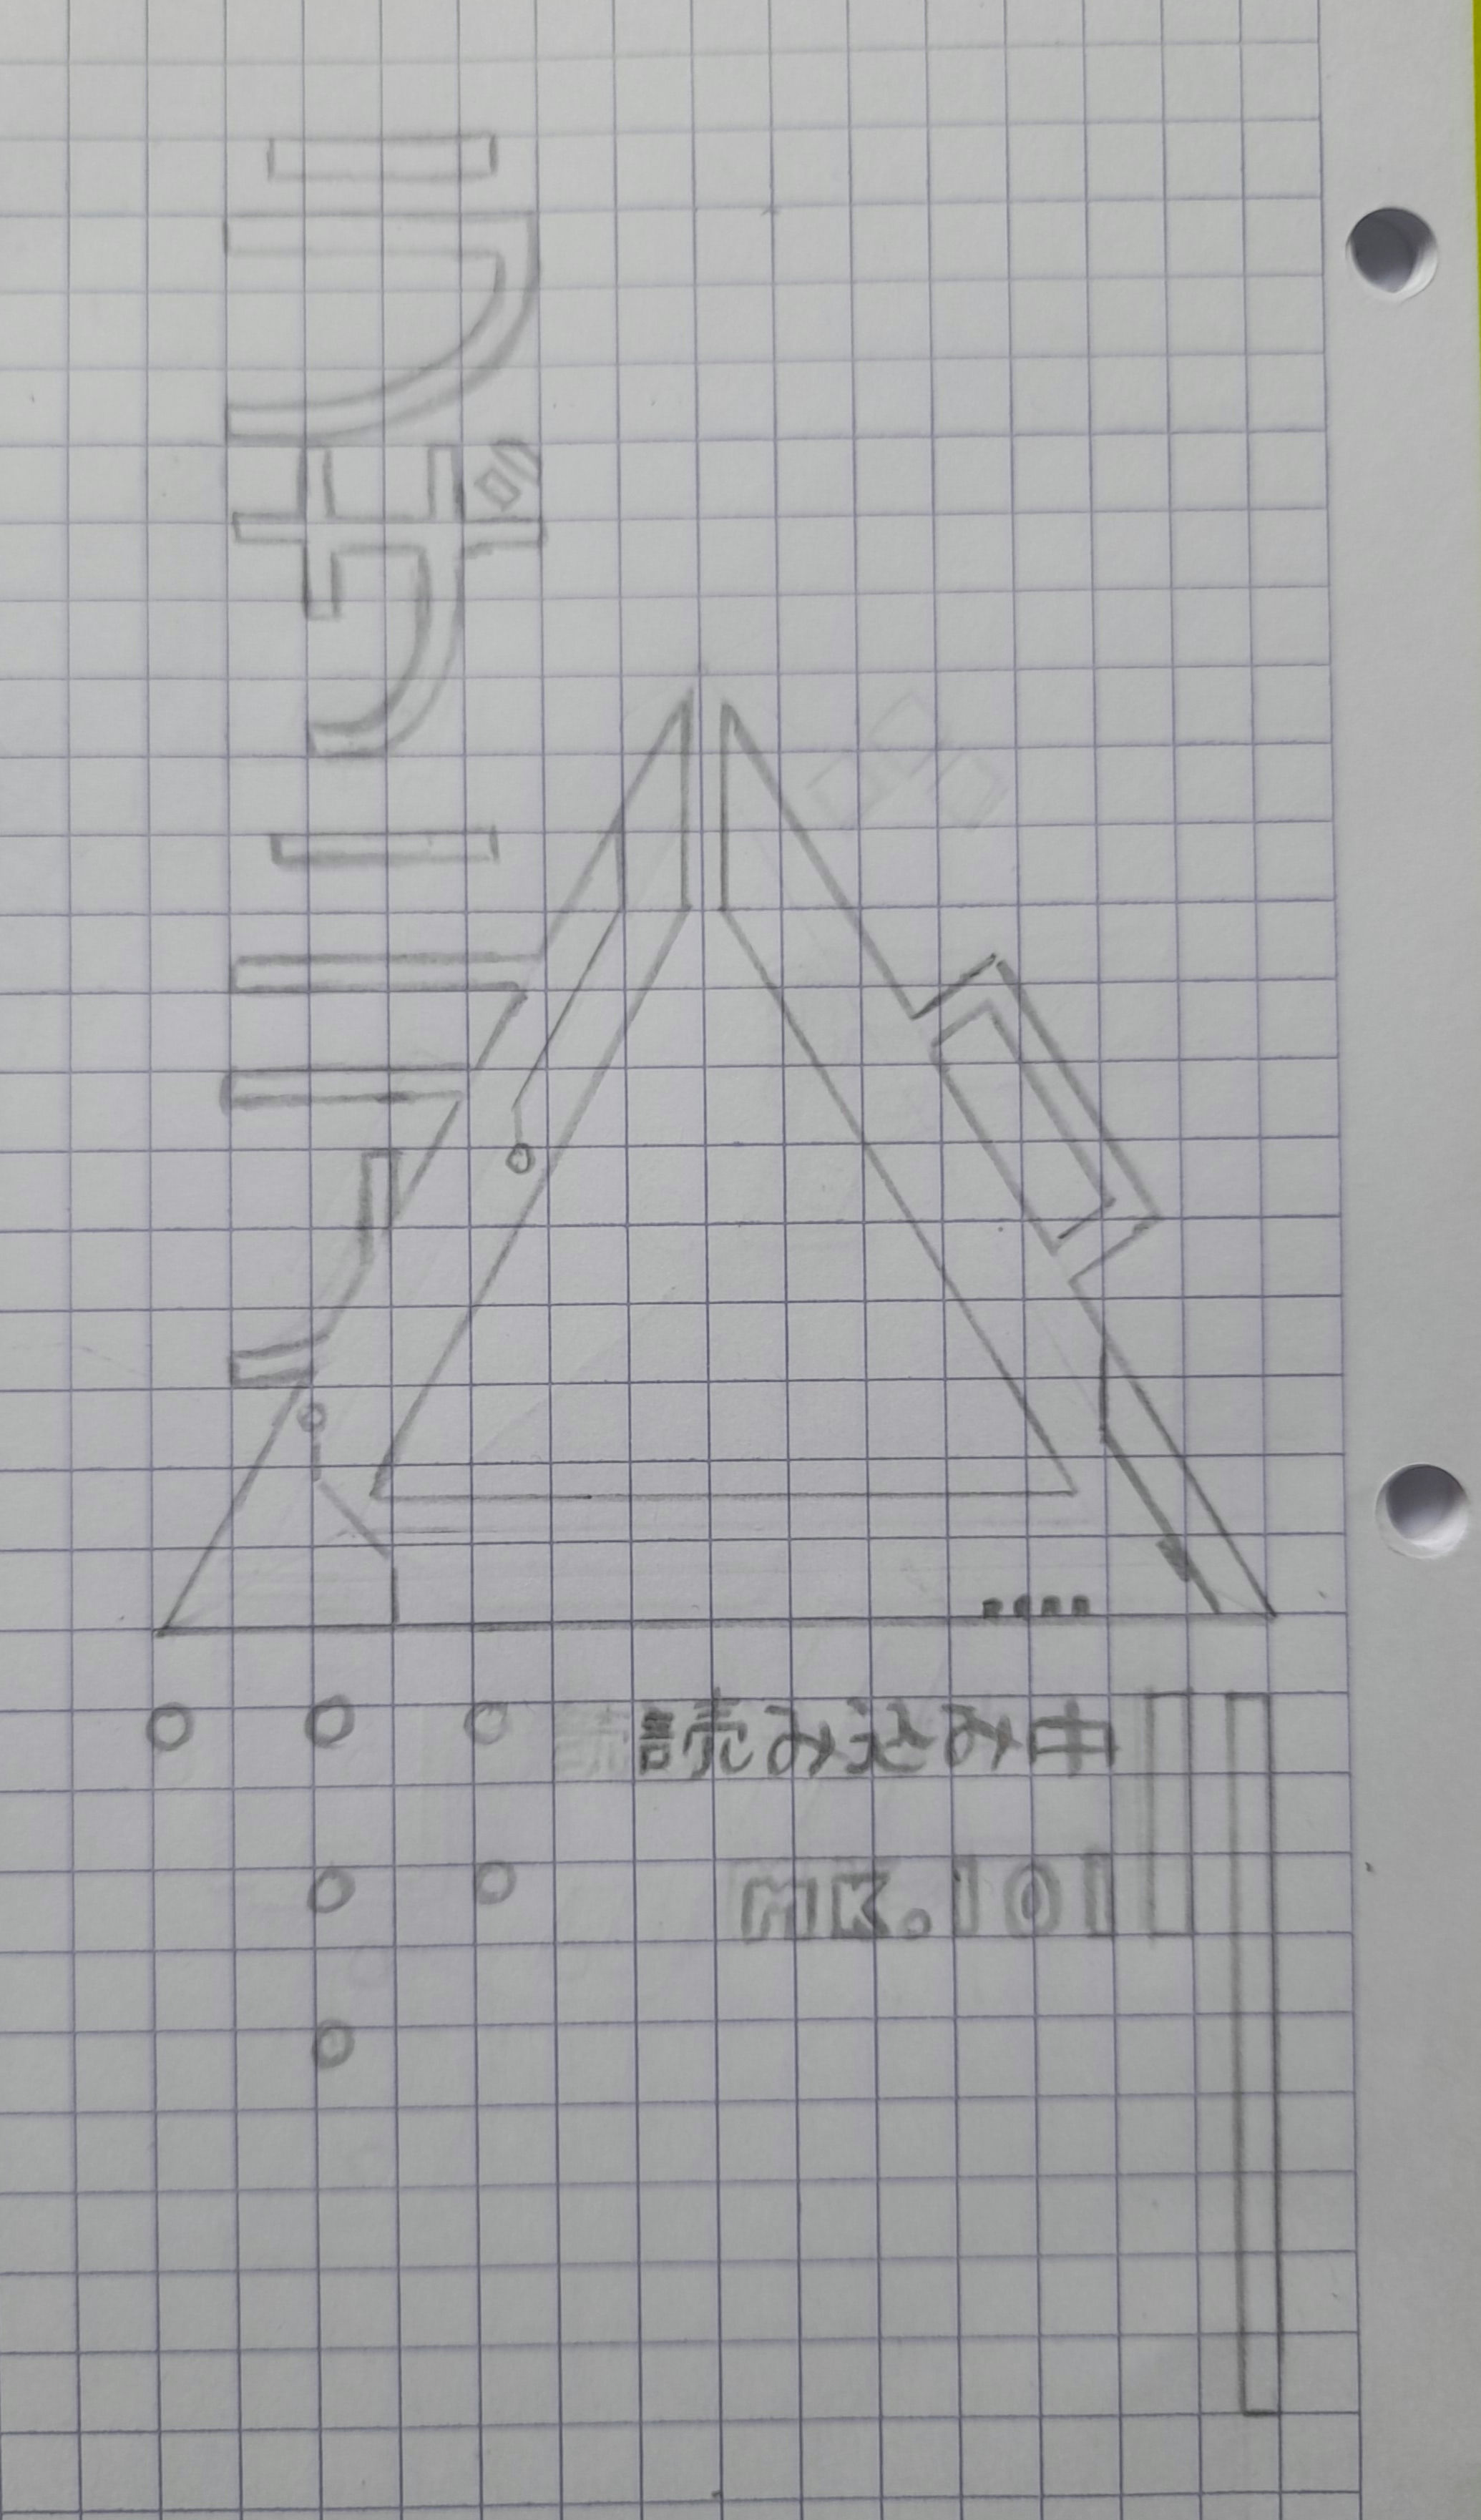 ラザニア
読み込み中
MK.101